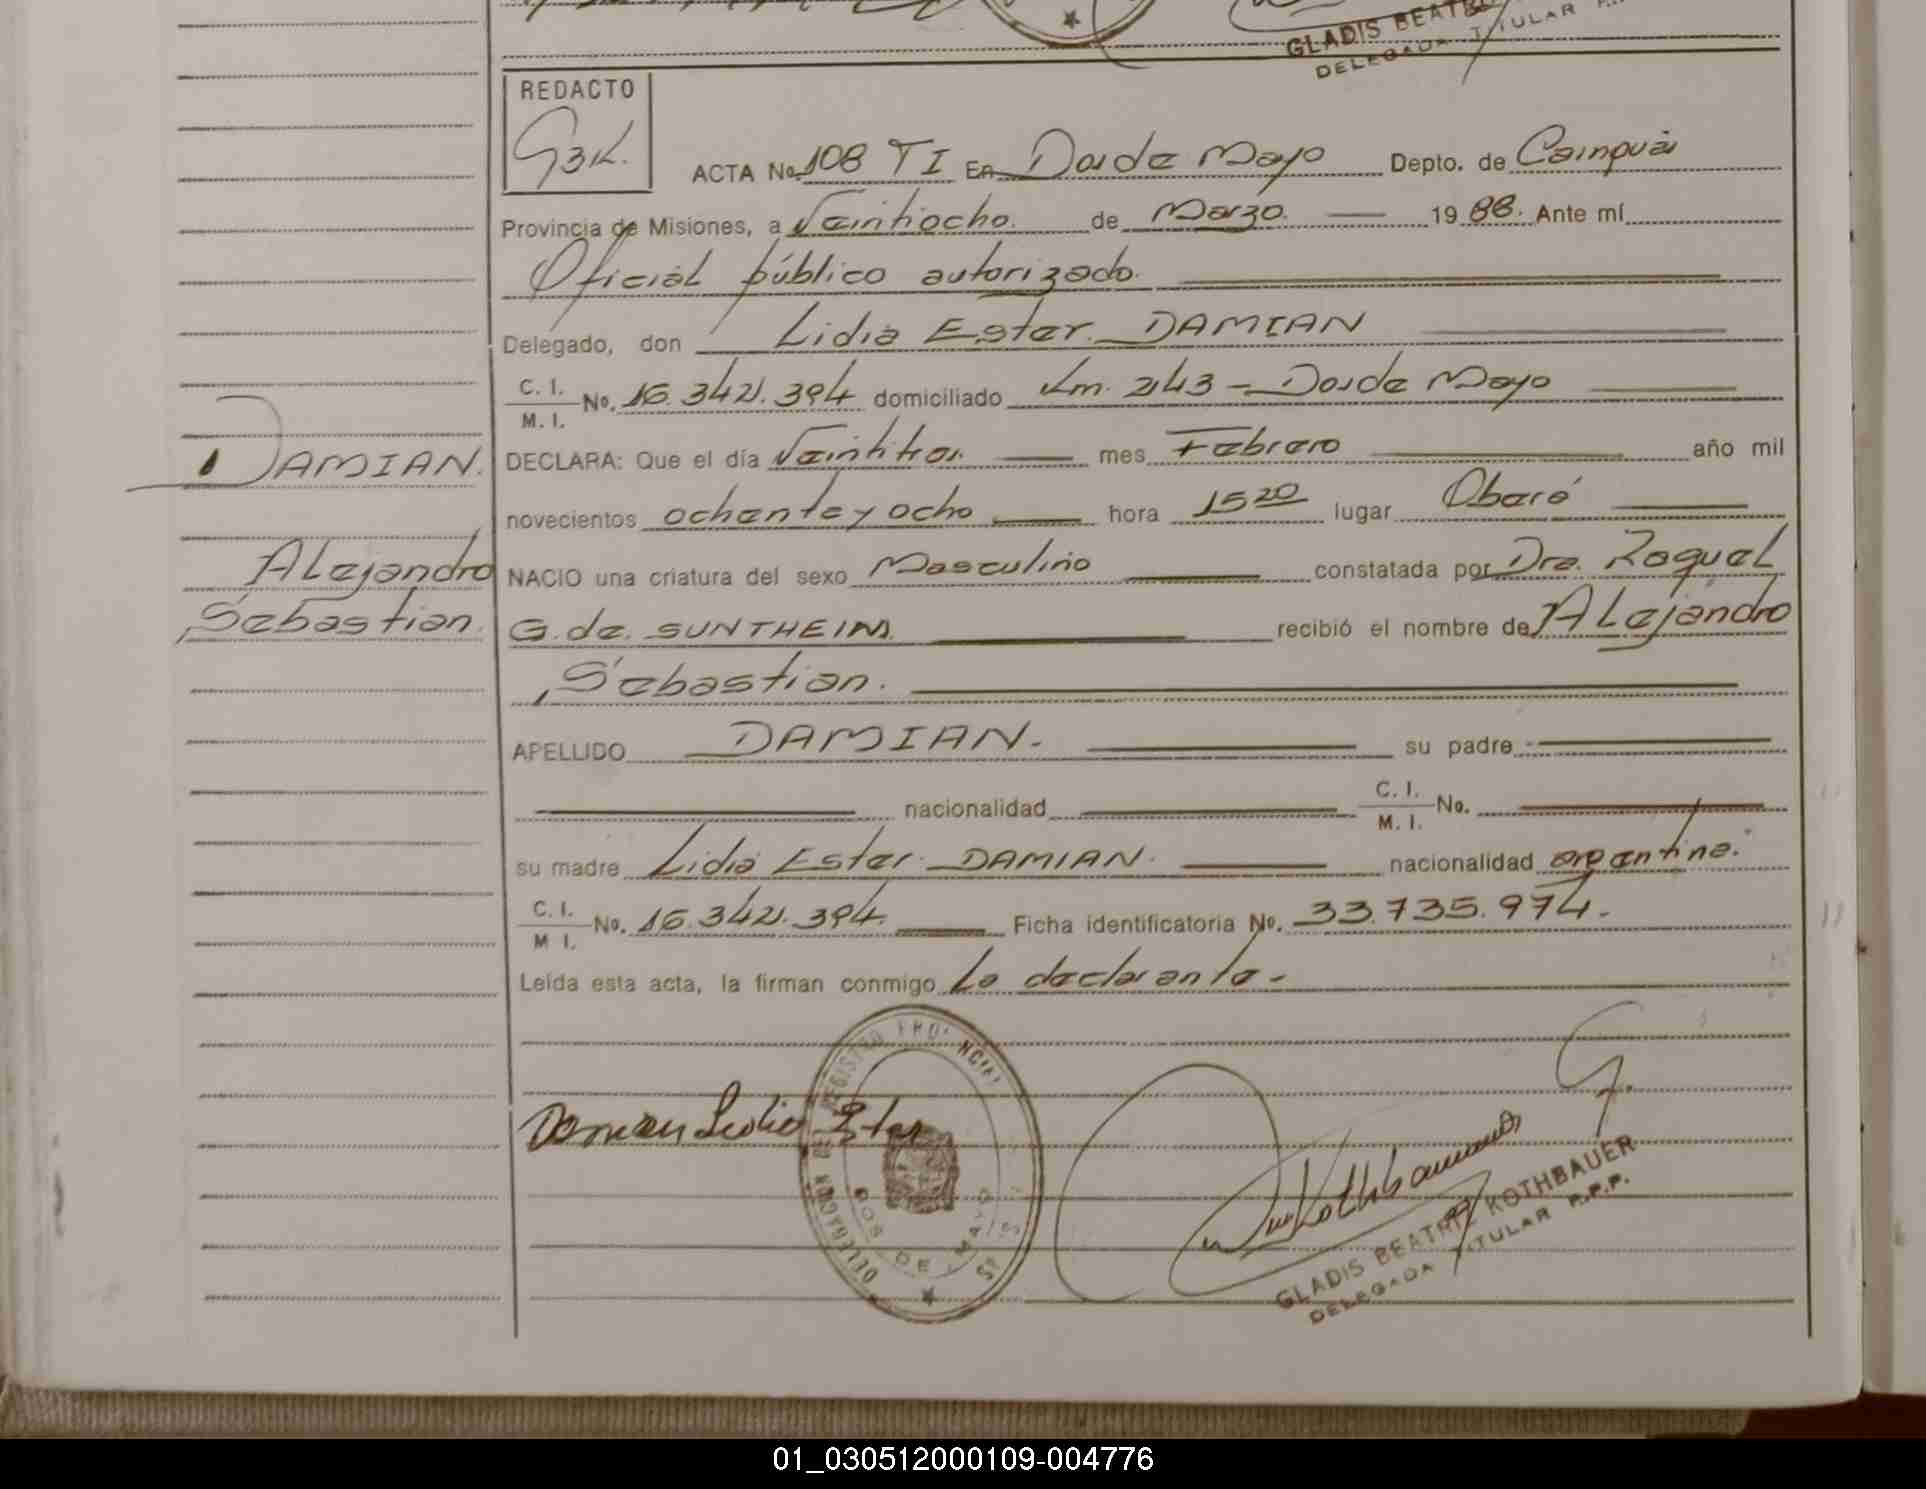 GLADIS BEATRIZ
DELEGADA TITULAR
REDACTO
GBK.
ACTA No. 108 TI En Dos de Mayo Depto. de Cainguás
Provincia de Misiones, a Veintiocho. de Marzo. 19 88. Ante mí
Oficial público autorizado.
Delegado, don Lidia Ester. DAMIAN
C. I.
M. I. No. 16.342.394 domiciliado Km. 243 - Dos de Mayo
DAMIAN. DECLARA: Que el día Veintitres. mes Febrero año mil
novecientos ochenta y ocho hora 15 20 lugar Oberá
Alejandro NACIO una criatura del sexo Masculino constatada por Dra. Raquel
Sebastian. G. de. SUNTHEIM. recibió el nombre de Alejandro
Sebastian.
APELLIDO DAMIAN. su padre
nacionalidad C. I.
M. I. No.
su madre Lidia Ester. DAMIAN. nacionalidad argentina.
C. I.
M I. No. 16.342.394. Ficha identificatoria No. 33.735.974.
Leída esta acta, la firman conmigo la declarante.
Damian Lidia Ester
DELEGACION DE REGISTRO PROVINCIAL
DOS DE MAYO
GLADIS BEATRIZ KOTHBAUER
DELEGADA TITULAR R.P.P.
01_030512000109-004776